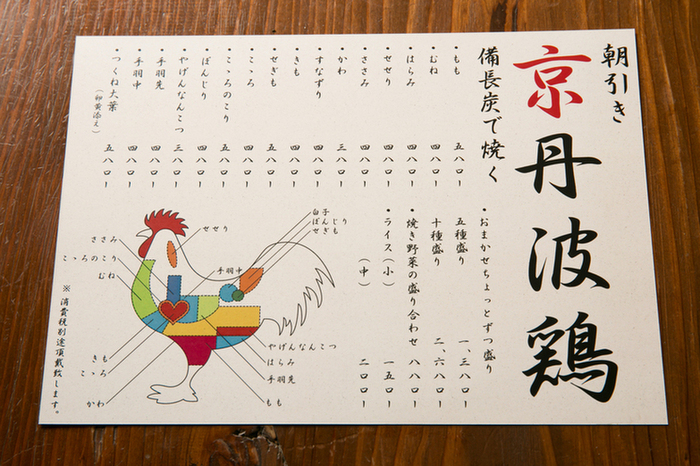 朝引き
京丹波鶏
備長炭で焼く
・もも 五八〇ー
・むね 四八〇ー
・はらみ 四八〇ー
・せせり 四八〇ー
・ささみ 四八〇ー
・かわ 三八〇ー
・すなずり 四八〇ー
・きも 四八〇ー
・せぎも 五八〇ー
・こころ 四八〇ー
・こころのこり 五八〇ー
・ぼんじり 四八〇ー
・やげんなんこつ 三八〇ー
・手羽先 四八〇ー
・手羽中 四八〇ー
・つくね大葉 五八〇ー
（卵黄添え）
・おまかせちょっとずつ盛り
五種盛り 一、三八〇ー
十種盛り 二、六八〇ー
・焼き野菜の盛り合わせ 八八〇ー
・ライス（小） 一五〇ー
（中） 二〇〇ー
白子
ぼんじり
せぎも
せせり
ささみ
こころのこり
むね
手羽中
きも
こころ
かわ
やげんなんこつ
はらみ
手羽先
もも
※消費税別途頂戴致します。